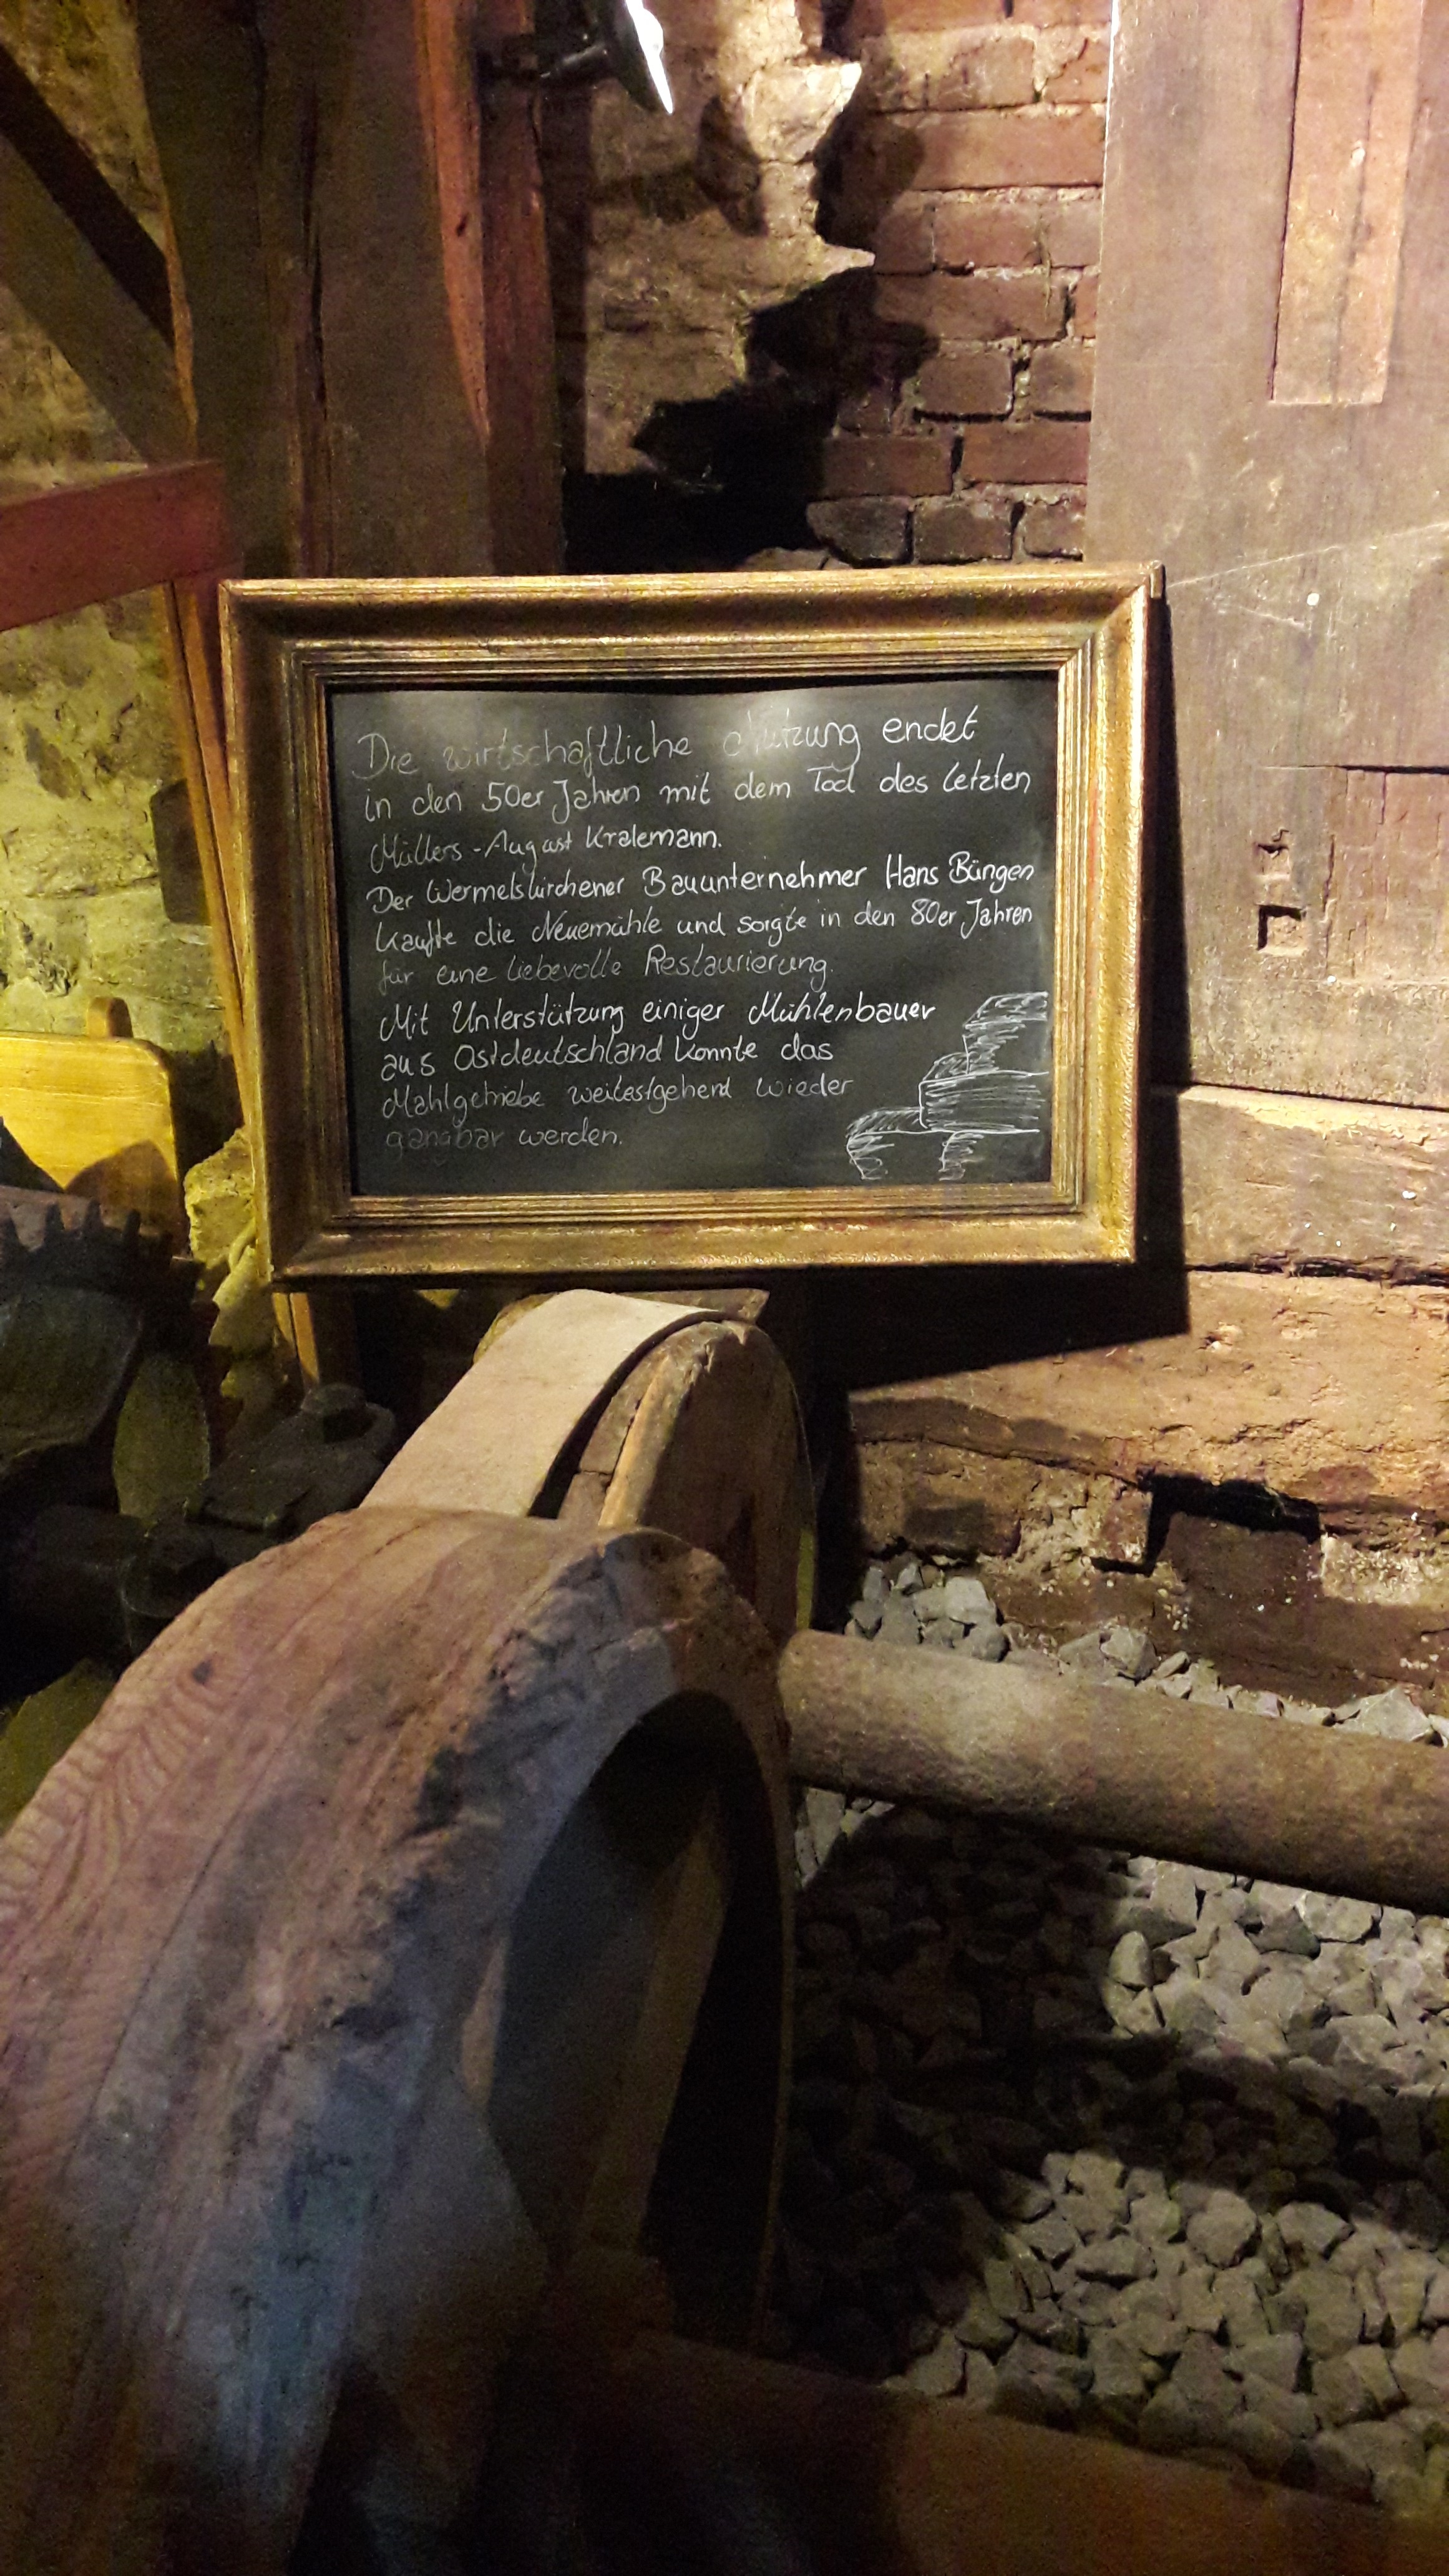 Die wirtschaftliche Nutzung endet
in den 50er Jahren mit dem Tod des letzten
Müllers - August Kralemann.
Der Wermelskirchener Bauunternehmer Hans Büngen
kaufte die Neuemühle und sorgte in den 80er Jahren
für eine liebevolle Restaurierung.
Mit Unterstützung einiger Mühlenbauer
aus Ostdeutschland konnte das
Mahlgetriebe weitestgehend wieder
gangbar werden.